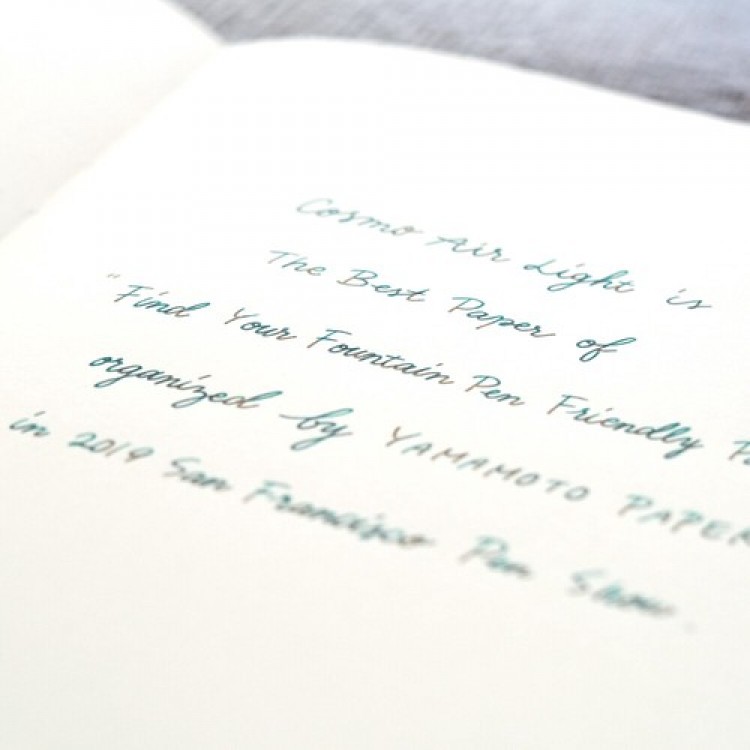 Cosmo Air Light is
The Best Paper of
"Find Your Fountain Pen Friendly
organized by YAMAMOTO PAPER
in 2019 San Francisco Pen Show.